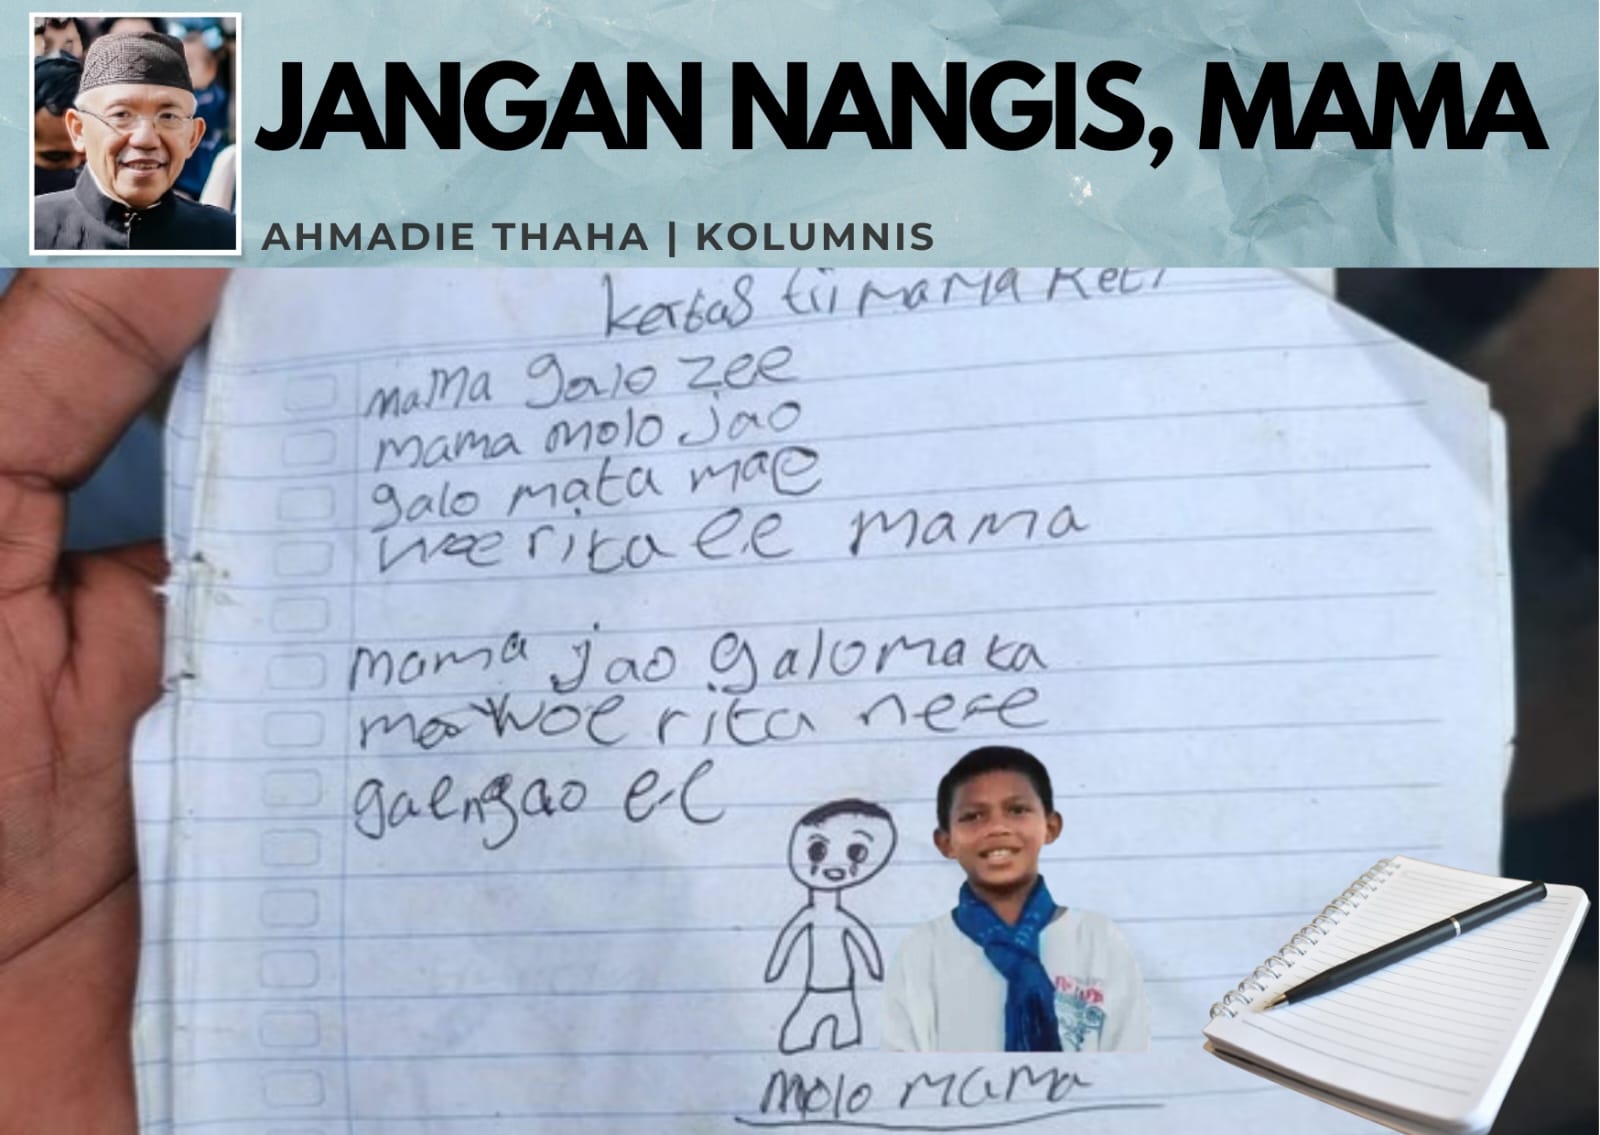 JANGAN NANGIS, MAMA
AHMADIE THAHA | KOLUMNIS
kertas tii mama Reti
mama galo zee
mama molo jao
galo mata mae
woe rita ee mama
mama jao galo mata
mae woe rita ne
gae ngao ee
molo mama